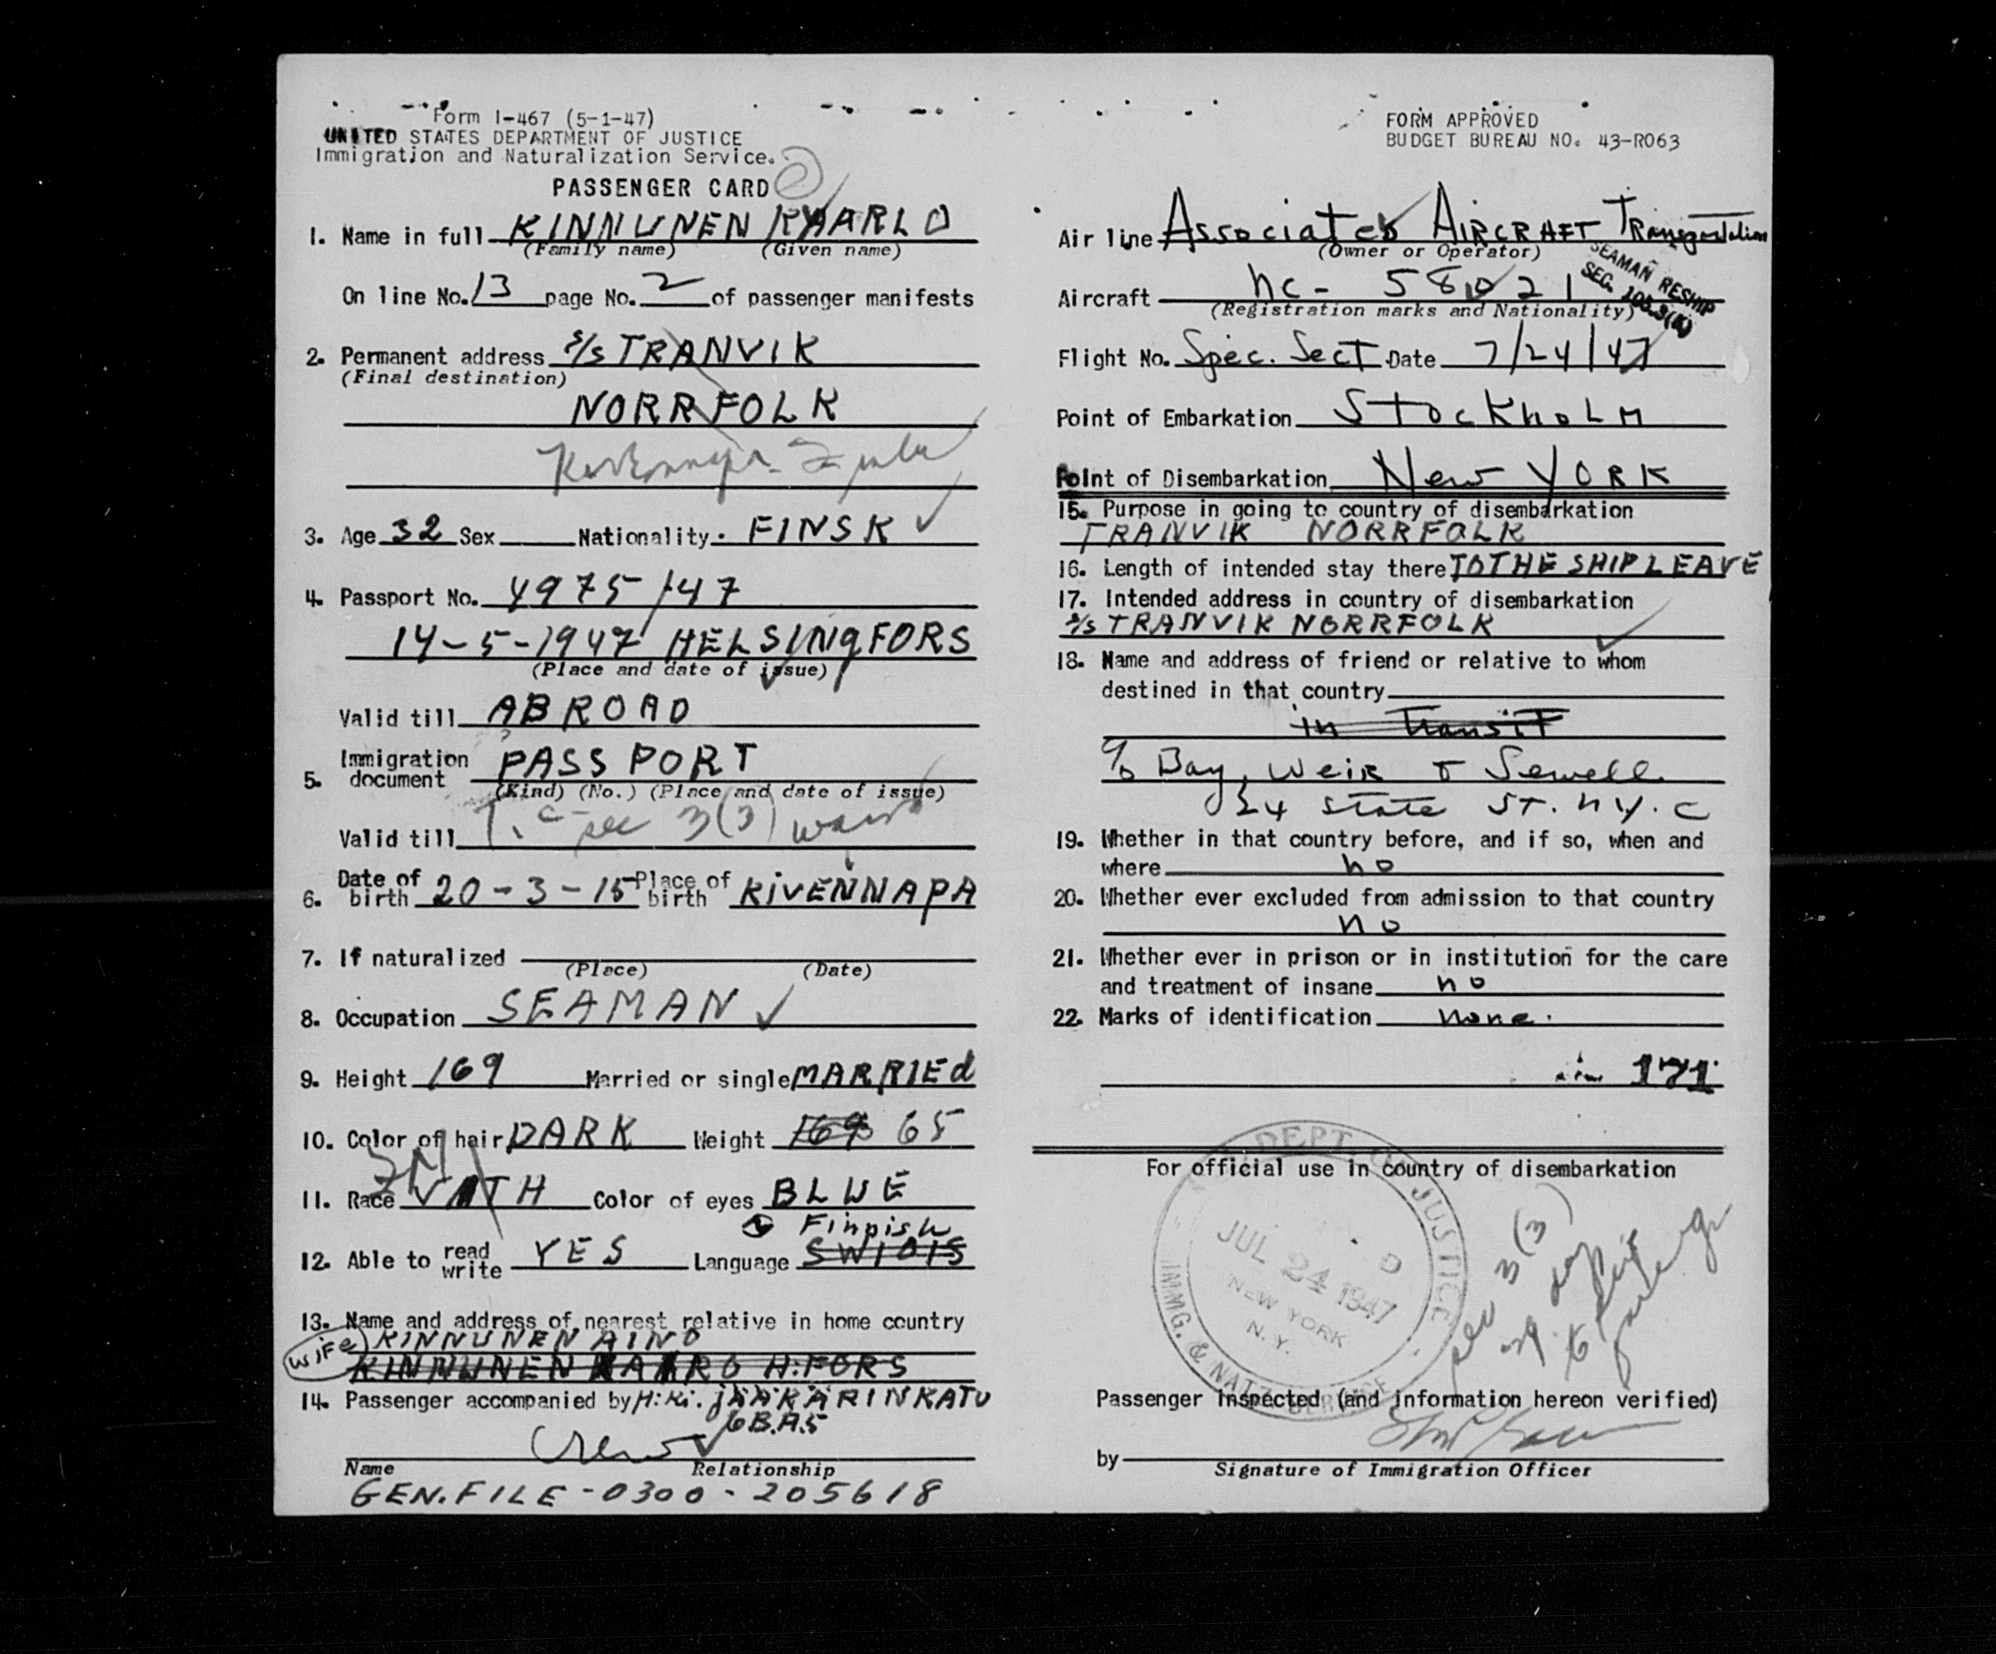 Form I-467 (5-1-47)
UNITED STATES DEPARTMENT OF JUSTICE
Immigration and Naturalization Service.
PASSENGER CARD 2
1. Name in full KINNUNEN KAARLO
(Family name) (Given name)
On line No. 13 page No. 2 of passenger manifests
2. Permanent address S/S TRANVIK
(Final destination)
NORRFOLK
3. Age 32 Sex Nationality. FINSK
4. Passport No. 4975/47
14-5-1947 HELSINgFORS
(Place and date of issue)
Valid till ABROAD
5. Immigration document PASSPORT
(Kind) (No.) (Place and date of issue)
Valid till sec 3(3)
6. Date of birth 20-3-15 Place of birth KiVENNAPA
7. If naturalized
(Place) (Date)
8. Occupation SEAMAN
9. Height 169 Married or single MARRIEd
10. Color of hair DARK Weight 169 65
11. Race Color of eyes BLUE
Finnish
12. Able to read write YES Language
13. Name and address of nearest relative in home country
wife KINNUNEN AINO
KINNUNEN H:FORS
14. Passenger accompanied by H:Ki. jÄÄKÄRINKATU
6B.A.5
Crew
Name Relationship
GEN. FILE - 0300 - 205618
FORM APPROVED
BUDGET BUREAU NO. 43-R063
Air line Associated AIRCRAFT Transportation
(Owner or Operator)
SEAMAN RESHIP
SEC.
Aircraft NC- 58021
(Registration marks and Nationality)
Flight No. Spec. Sect Date 7/24/47
Point of Embarkation STOCKHOLM
Point of Disembarkation New YORK
15. Purpose in going to country of disembarkation
TRANVIK NORRFOLK
16. Length of intended stay there TO THE SHIP LEAVE
17. Intended address in country of disembarkation
S/S TRANVIK NORRFOLK
18. Name and address of friend or relative to whom
destined in that country
in Transit
c/o Bay, Weir & Sewell
24 State ST. N.Y.C
19. Whether in that country before, and if so, when and
where no
20. Whether ever excluded from admission to that country
no
21. Whether ever in prison or in institution for the care
and treatment of insane no
22. Marks of identification none.
171
For official use in country of disembarkation
DEPT. OF JUSTICE
JUL 24 1947
NEW YORK
N.Y.
IMMG. & NATZ. SERVICE
sec 3(3)
29 days
Passenger inspected (and information hereon verified)
by
Signature of Immigration Officer